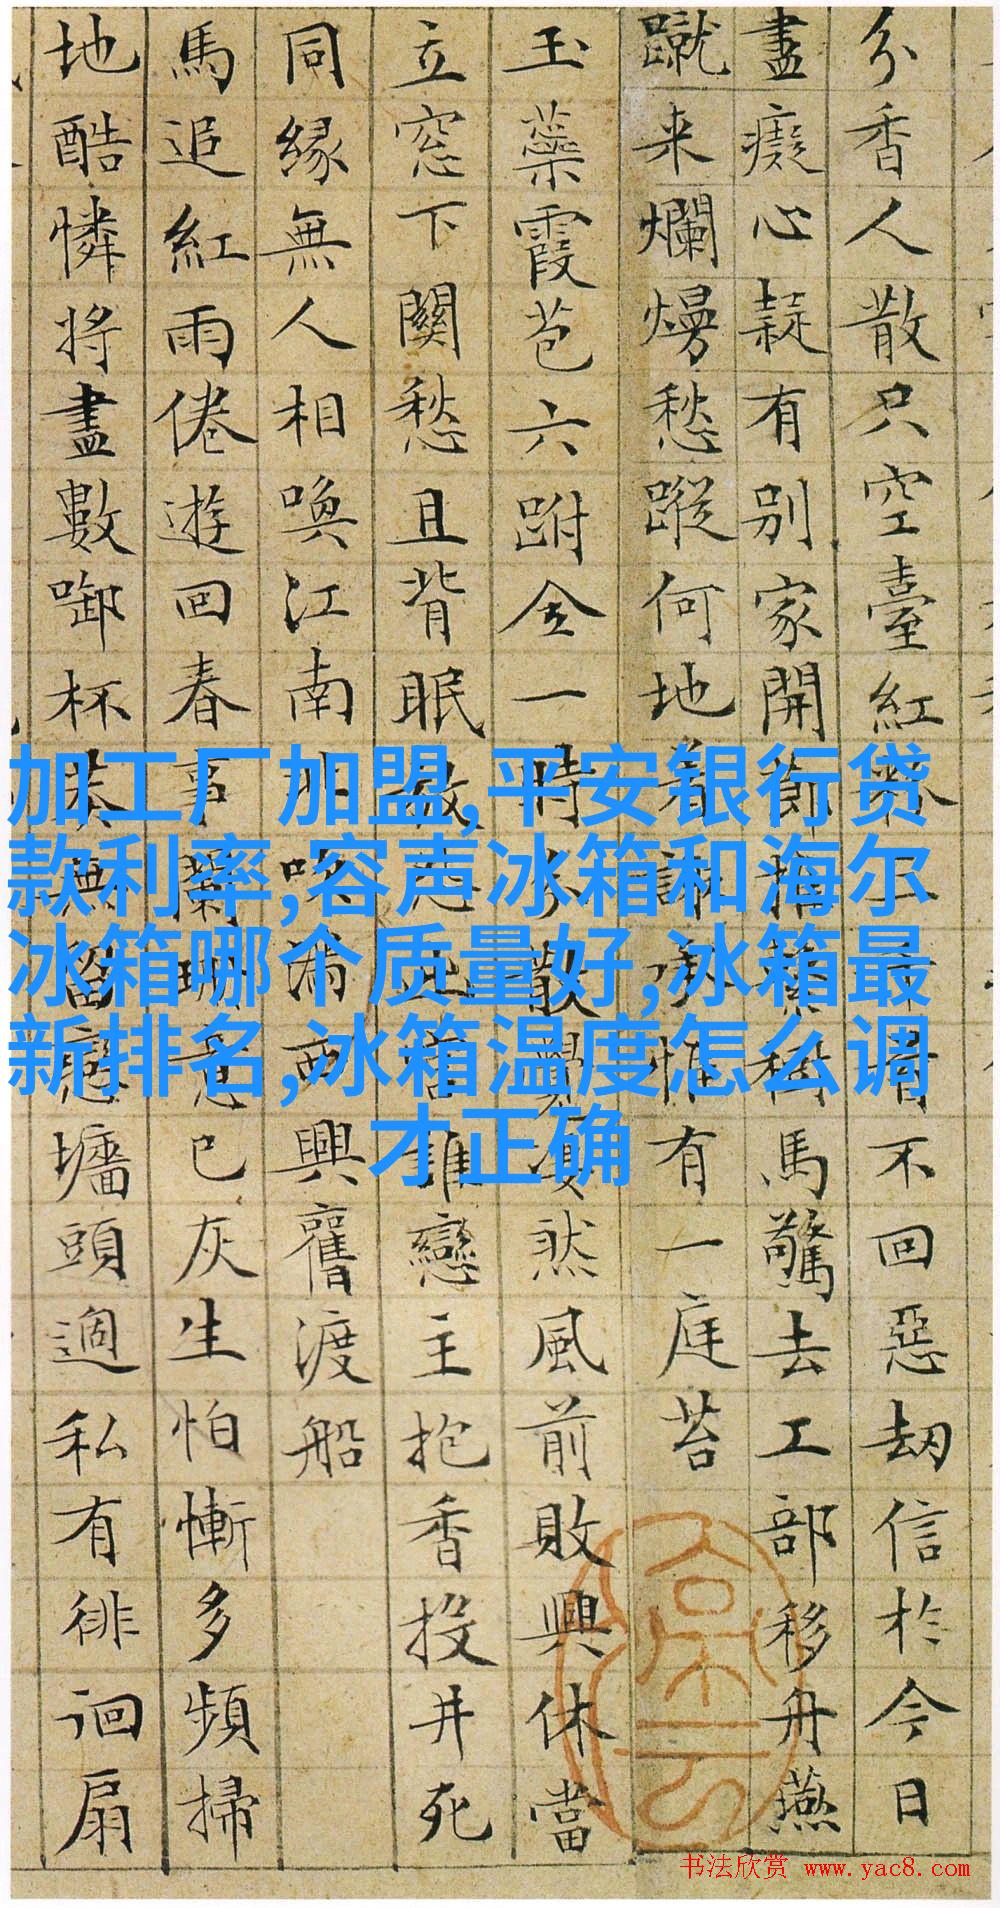 分香人散只空臺紅不回惡劫信於今日
盡癡心疑有別家開節馬驚去工部移舟燕
蹴来爛熳愁蹤何地着惟有一庭苔
玉蘂霞苞六跗全一時散然風前敗興休當
立窓下關愁且背眠誰戀主抱香投井死
同緣無人相喚江南滿西興舊渡船
馬追紅雨倦遊回春事意已灰生怕慚多頻掃
地酷憐將盡數啣杯戀墻頭過私有徘徊扇
加工厂加盟,平安银行贷
款利率,容声冰箱和海尔
冰箱哪个质量好,冰箱最
新排名,冰箱温度怎么调
才正确
书法欣赏 www.yac8.com